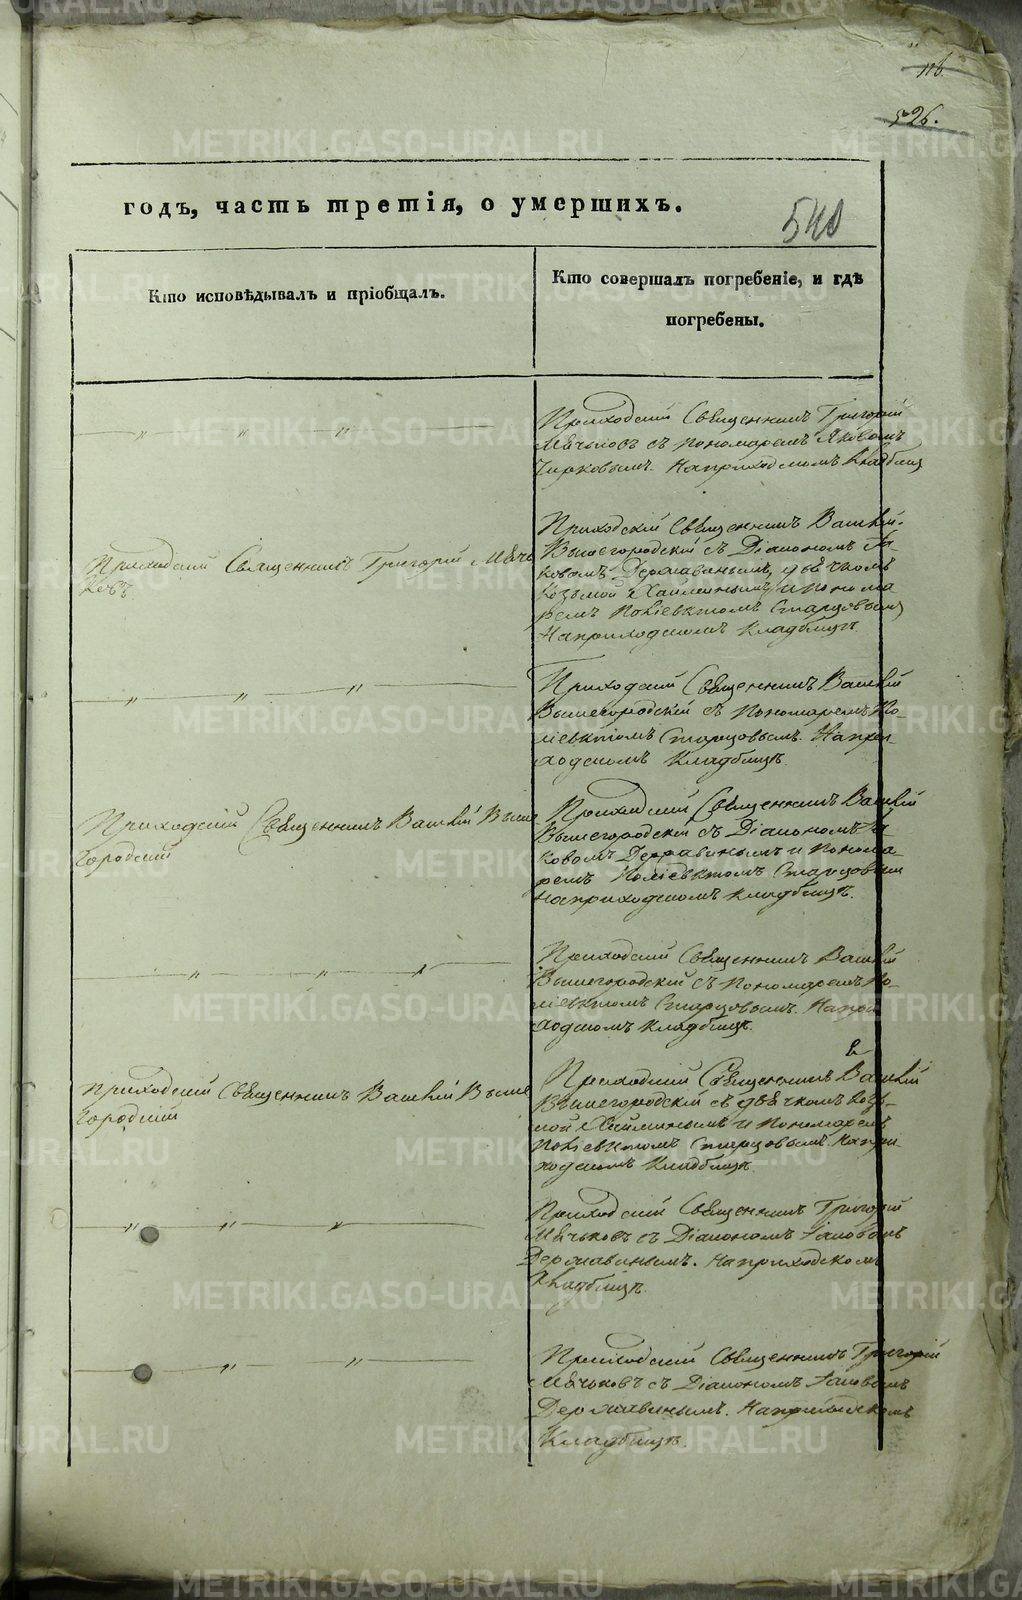 116.
526.
годъ, часть третія, о умершихъ.
540
Кто исповѣдывалъ и пріобщалъ.
Кто совершалъ погребеніе, и гдѣ
погребены.
— " — " — " —
Приходскій Священникъ Григорій
Мячьковъ съ пономаремъ Яковомъ
Чирковымъ. На приходскомъ Кладбищѣ
Приходскій Священникъ Григорій Мячь
ковъ
Приходскій Священникъ Василій
Вышегородскій съ Діакономъ Іа-
ковомъ Державинымъ, дьячкомъ
Козьмой и понома
ремъ Поліевктомъ Старцовымъ
На приходскомъ Кладбищѣ.
— " — " — " —
Приходскій Священникъ Василій
Вышегородскій съ Пономаремъ По-
ліевктомъ Старцовымъ. На при
ходскомъ Кладбищѣ.
Приходскій Священникъ Василій Выше
городскій
Приходскій Священникъ Василій
Вышегородскій съ Діакономъ Іа-
ковомъ Державинымъ и Понома-
ремъ Поліевктомъ Старцовым
на приходскомъ Кладбищѣ.
— " — " — " —
Приходскій Священникъ Василій
Вышегородскій съ Пономаремъ По-
ліевктомъ Старцовымъ. На при
ходскомъ Кладбищѣ.
Приходскій Священникъ Василій Выше
городскій
Приходскій Священникъ Василій
Вышегородскій съ дьячкомъ Козь-
мой и Пономаремъ
Поліевктомъ Старцовымъ. На при
ходскомъ Кладбищѣ
— " — " — " —
Приходскій Священникъ Григорій
Мячьковъ съ Діакономъ Іаковомъ
Державинымъ. На приходскомъ
Кладбищѣ.
— " — " — " —
Приходскій Священникъ Григорій
Мячьковъ съ Діакономъ Іаковомъ
Державинымъ. На приходскомъ
Кладбищѣ.
METRIKI.GASO-URAL.RU